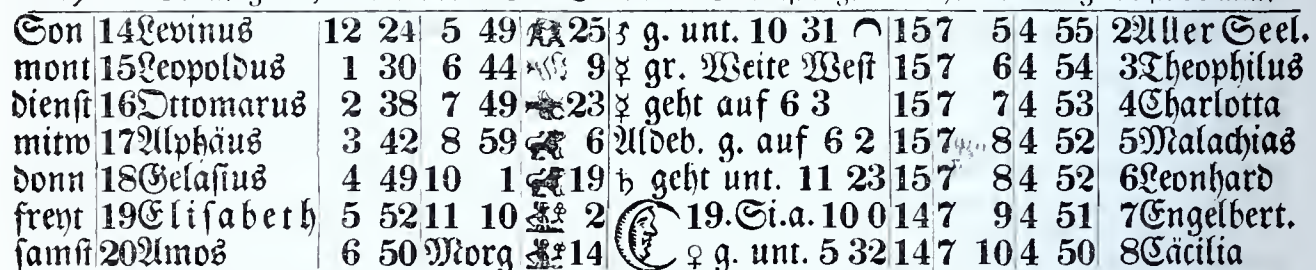 Son 14 Levinus 12 24 5 49 25 ♂ g. unt. 10 31 15 7 5 4 55 2 Aller Seel.
mont 15 Leopoldus 1 30 6 44 9 ☿ gr. Weite West 15 7 6 4 54 3 Theophilus
dienst 16 Ottomarus 2 38 7 49 23 ☿ geht auf 6 3 15 7 7 4 53 4 Charlotta
mitw 17 Alphäus 3 42 8 59 6 Aldeb. g. auf 6 2 15 7 8 4 52 5 Malachias
donn 18 Gelasius 4 49 10 1 19 ♄ geht unt. 11 23 15 7 8 4 52 6 Leonhard
freyt 19 Elisabeth 5 52 11 10 2 19. Si. a. 10 0 14 7 9 4 51 7 Engelbert.
samst 20 Amos 6 50 Morg 14 ♀ g. unt. 5 32 14 7 10 4 50 8 Cäcilia